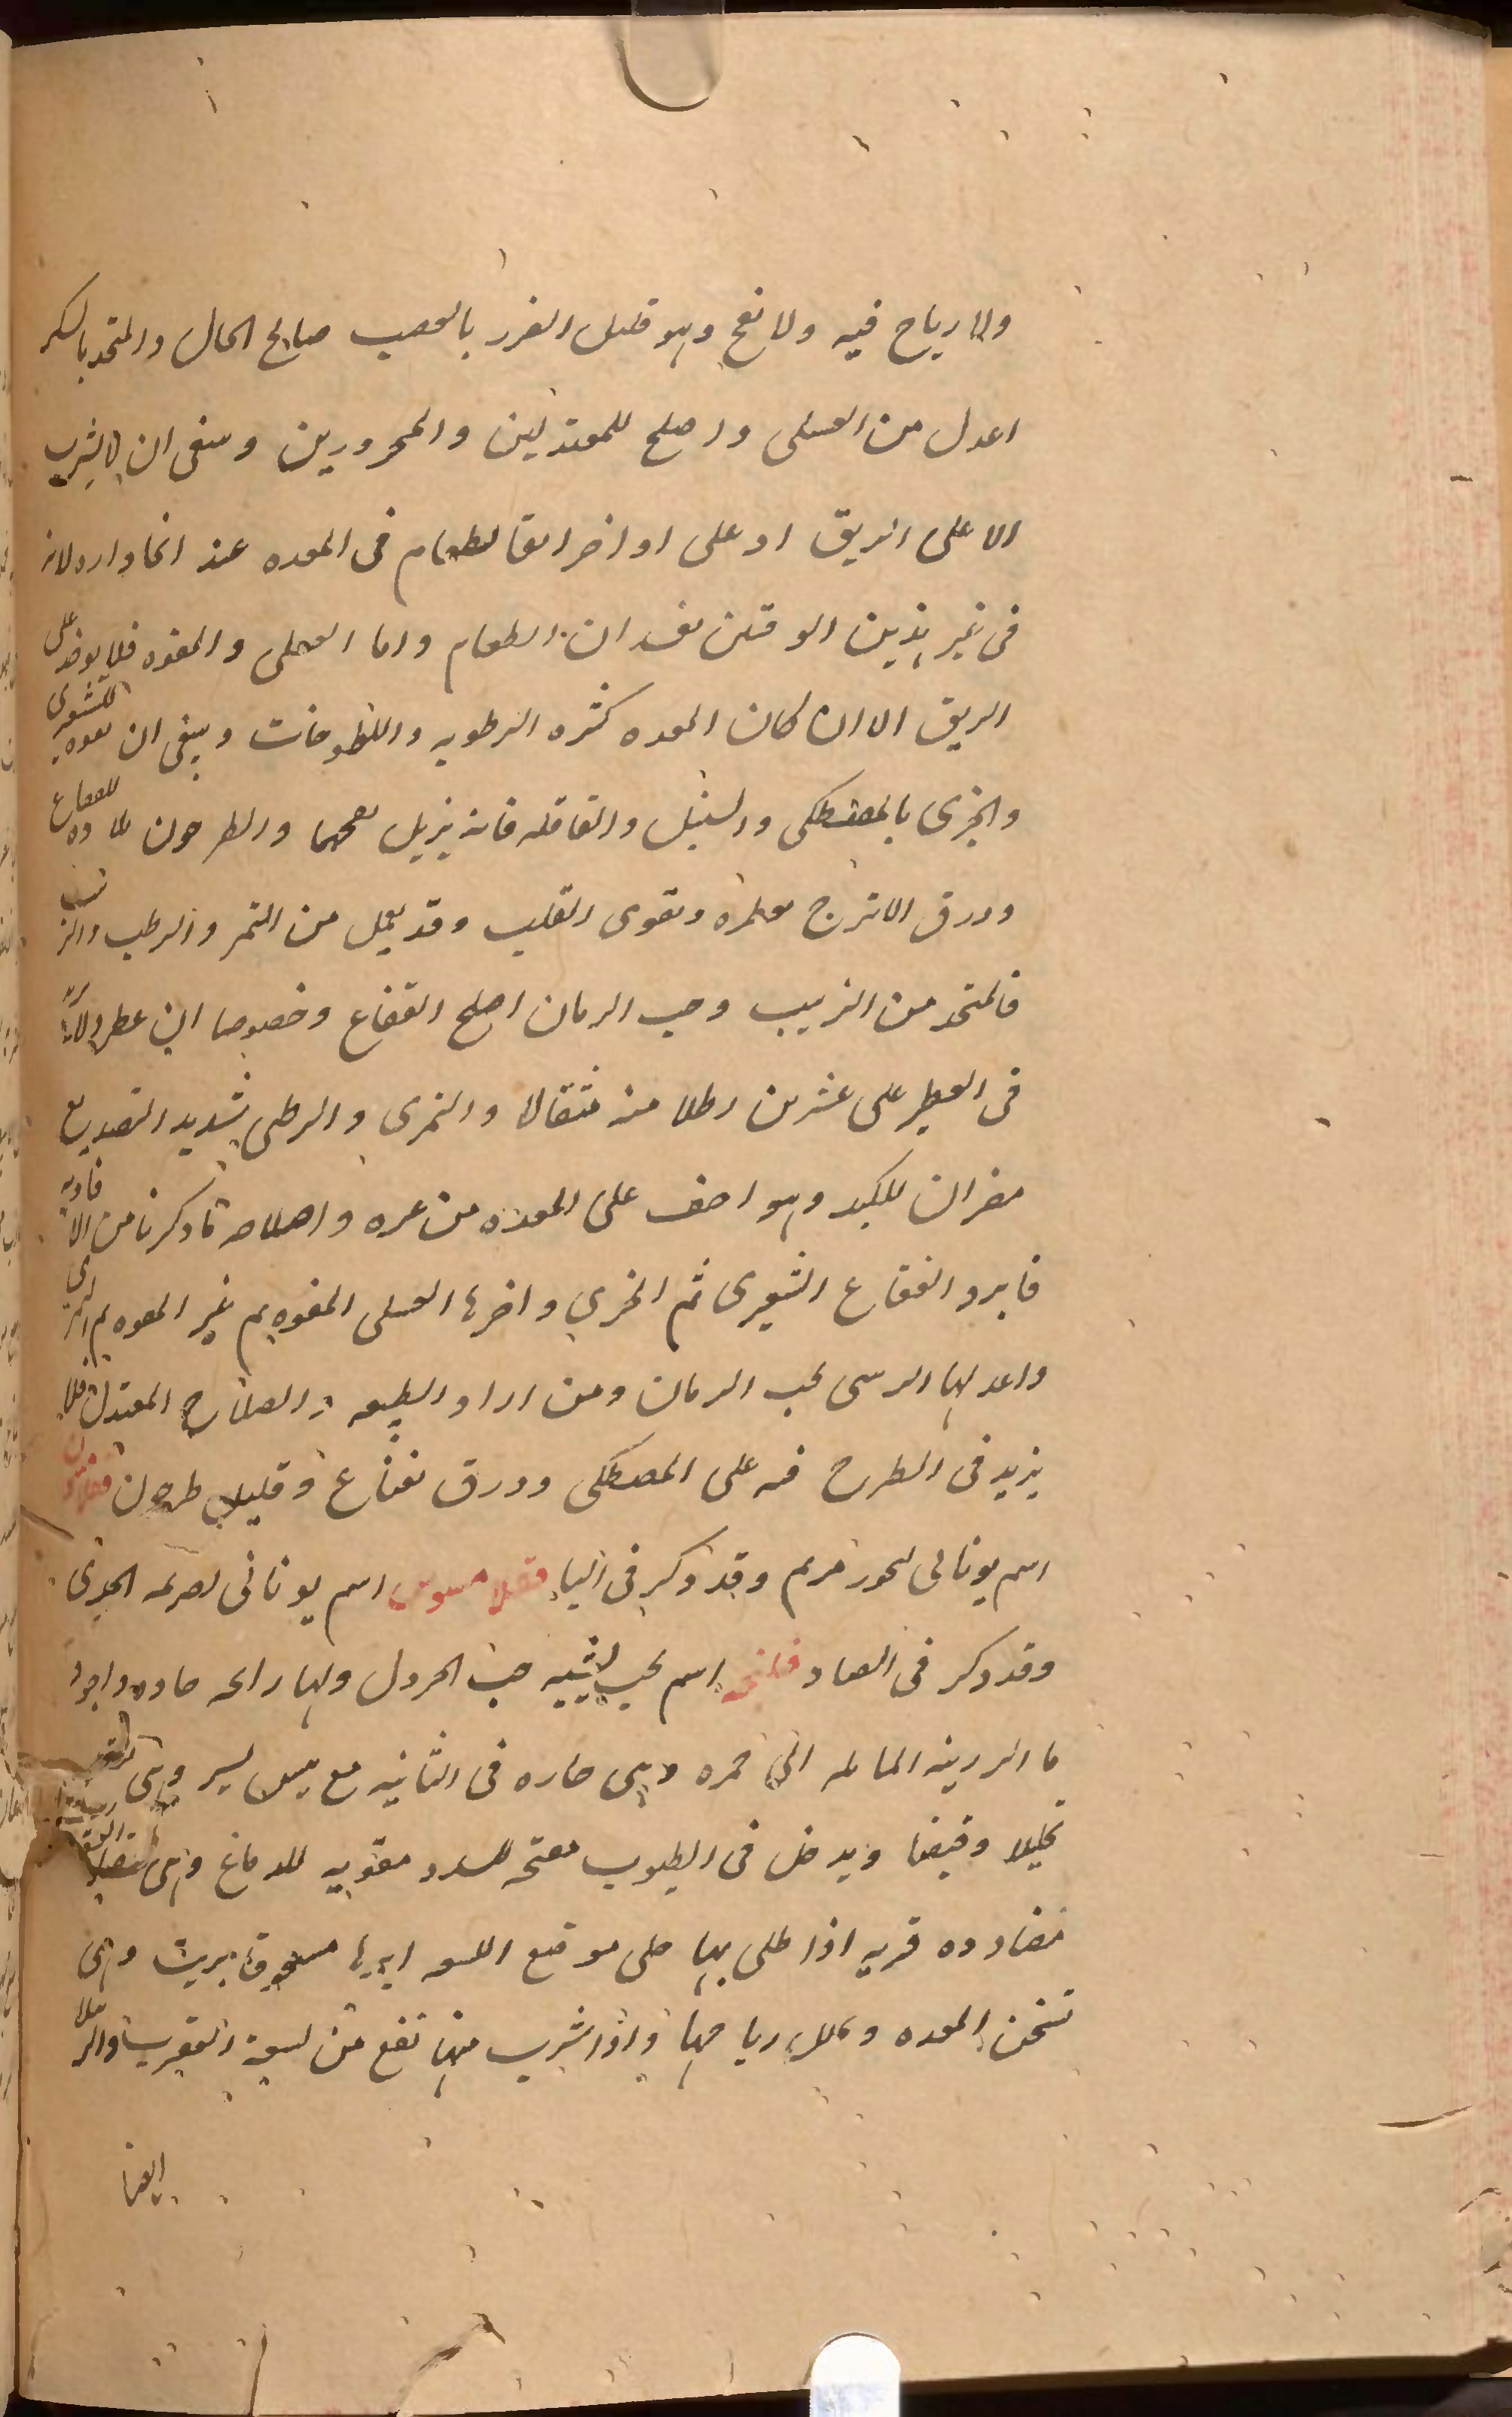 ولا رياح فيه ولا نفخ وهو قليل الضرر بالعصب صالح الحال والمتخذ بالسكر
اعدل من العسلى واصلح للمعتدلين والمحرورين وينبغى ان لا يشرب
الا على الريق او على اواخر الطعام فى المعده عند انحداره لانه
فى غير هذين الوقتين يفسدان الطعام واما العسلى والمفوه فلا يوخذ على
الريق الا ان كان المعده كثره الرطوبه وينبغى ان يفوه الشعيرى
والخبزى بالمصطكى والسنبل والقاقله فانه يزيل نفخهما والطرخون للفقاع
وورق الاترج يعطره ويقوى القلب وقد يعمل من التمر والرطب والزبيب
فالمتخذ من الزبيب وحب الرمان اصلح الفقاع وخصوصا ان عطر
فى العطر على عشرين رطلا منه مثقالا والتمرى والرطبى شديد التصديع
مضران للكبد وهو اخف على المعده من غيره واصلاحه ما ذكرنا من الافاويه
فابرد الفقاع الشعيرى ثم الخبزى واخرها العسلى المفوه ثم غير المفوه ثم التمرى
واعدلها الزبيبى بحب الرمان ومن اراد الطبيعه والصلاح المعتدل فلا
يزيد فى الطرح فيه على المصطكى وورق نعناع وقليل طرخون
اسم يونانى لبخور مريم وقد ذكر فى الباء فقلامينوس اسم يونانى لصريمه الجدى
وقد ذكر فى الصاد فلنجه اسم لحب يشبه حب الخردل ولها رائحه حاده واجودها
الرزينه المائله الى حمره وهى حاره فى الثانيه مع ميل يسير وهى
تحليلا وقبضا ويدخل فى الطيوب مفتحه للسدد مقويه للدماغ وهى
مضادده قويه اذا طلى بها على موضع اللسعه مسحوقا بزيت وهى
تسخن المعده وتحلل رياحها واذا شرب منها نفع من لسعة العقرب
ايضا